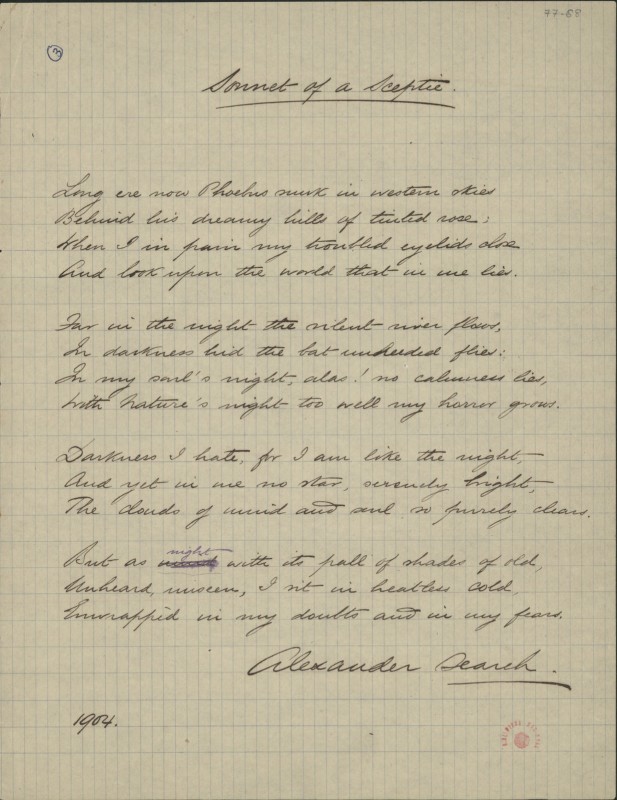 77-68
3
Sonnet of a Sceptic.
Long ere now Phoebus sunk in western skies
Behind his dreamy hills of tinted rose;
When I in pain my troubled eyelids close
And look upon the world that in me lies.
Far in the night the silent river flows,
In darkness hid the bat unheeded flies:
In my soul's night, alas! no calmness lies,
With Nature's night too well my horror grows.
Darkness I hate, for I am like the night,
And yet in me no star, serenely bright,
The clouds of mind and soul so purely clears.
night
But as with its pall of shades of old,
Unheard, unseen, I sit in heatless cold,
Enwrapped in my doubts and in my fears.
Alexander Search.
1904.